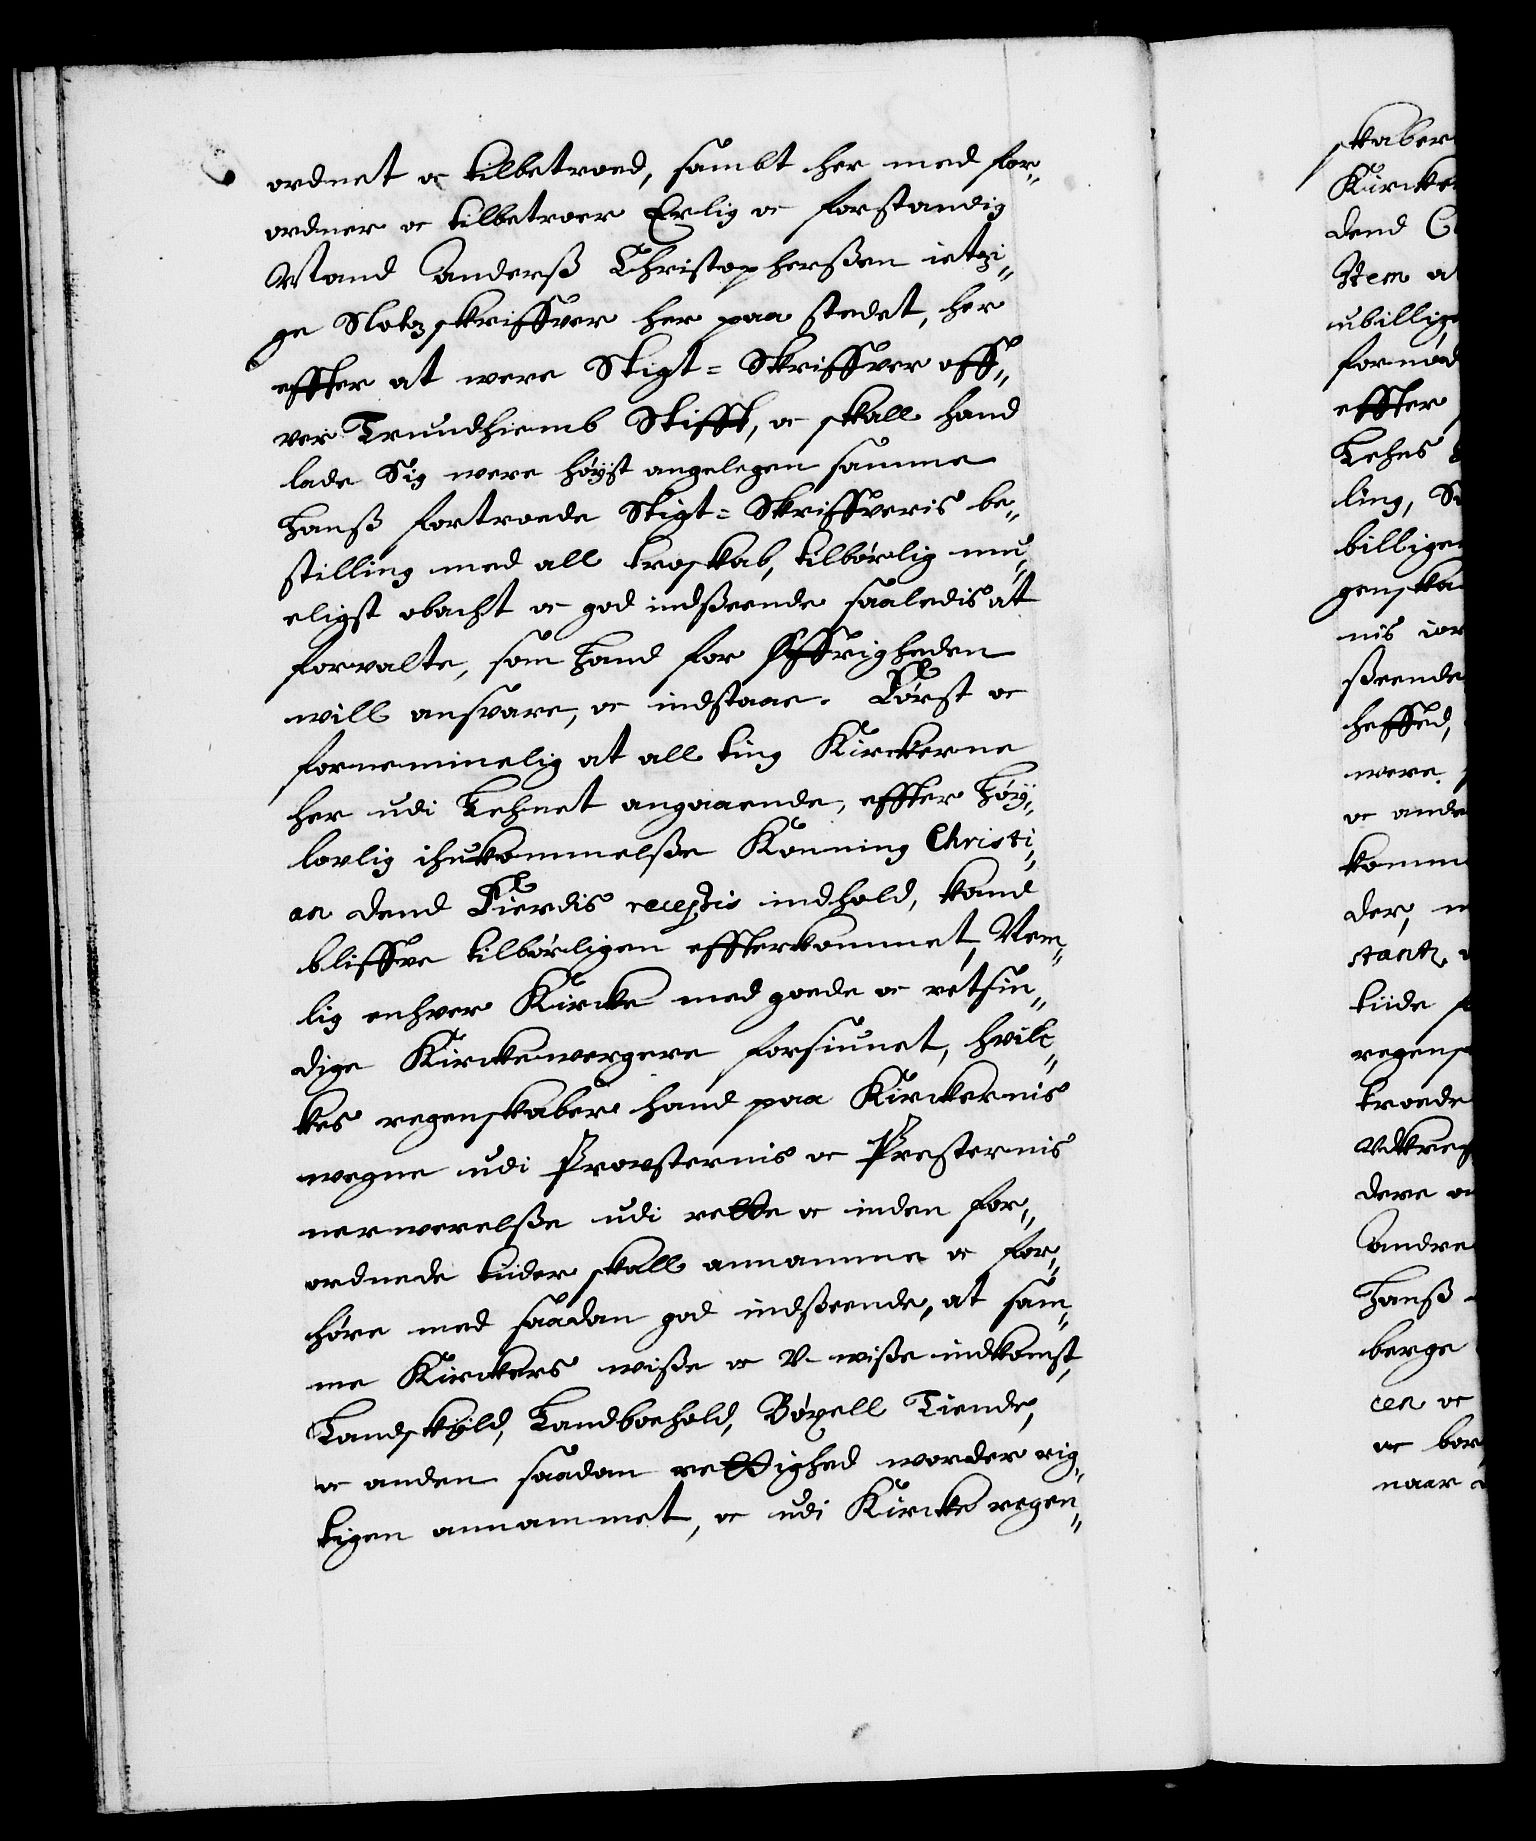 ordnet oc tilbetroed, sambt her med for„
ordner oc tilbetroer Erlig oc forstandig
Mand Anderß Christopherßen ietzi„
ge Slotzskriffver her paa stedet, her
effter at were Stigt= Skriffver off„
ver Trundhiemb Stifft, oc skall hand
lade Sig were høyst angelegen samme
Hanß fortroede Stigt= Skriffveris be„
stilling med all troskab, tilbørlig mu„
eligst obacht oc god indßeende saaledis at
forvalte, som Hand for Øffrigheden
will ansvare, oc indstaae. Først oc
fornemmelig at all ting Kirckerne
her udi Lehnet angaaende, effter Høy„
lovlig ihukommelße Konning Christi„
an dend Fierdis recessis indhold, kand
bliffve tilbørligen effterkommet, Nem„
lig enhver Kircke med goede oc retsin„
dige Kirckewergere forsiunet, hvilc„
kes regenskaber hand paa Kirckernis
wegne udi Provsternis oc Presternis
nerwerelße udi rette oc inden for„
ordnede tiider skall annamme oc for„
høre med saadan god indßeende, at sam„
me Kirckers wiße oc V-wiße indkomst,
Landskyld, Landboehold, Bøxell Tiende,
oc anden saadan rettighed worder rig„
tigen annammet, oc udi Kircke regen„
skaber
Kircke
dend
Item
ubillig
formod
effter
Lehns
ling,
billigen
genska
nis
ßeende
heffed,
were
oc ande
komme
der,
stantz
tiide
regens
troede
Vdkreff
dere
Andre
Hanß
berge
cen oc
oc bor
naar